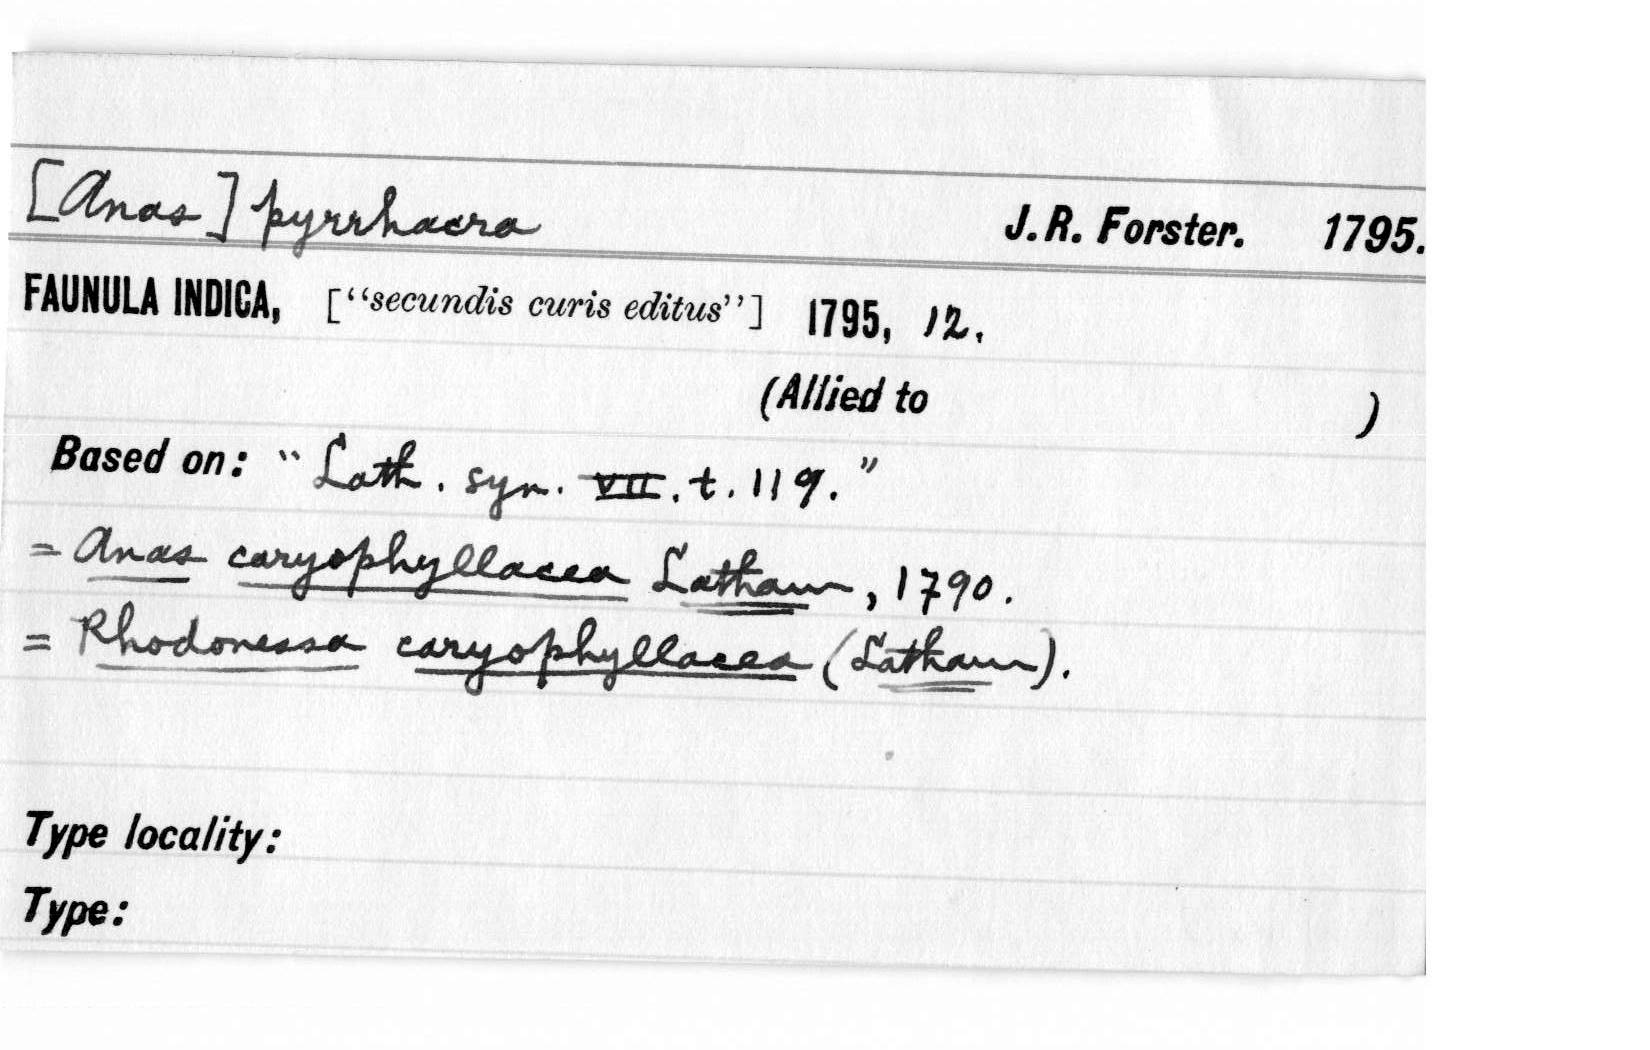 [Anas] pyrrhacra J. R. Forster. 1795.
FAUNULA INDICA, [“secundis curis editus”] 1795, 12.
(Allied to )
Based on: “Lath. syn. VII. t. 119.”
= Anas caryophyllacea Latham, 1790.
= Rhodonessa caryophyllacea (Latham).
Type locality:
Type: